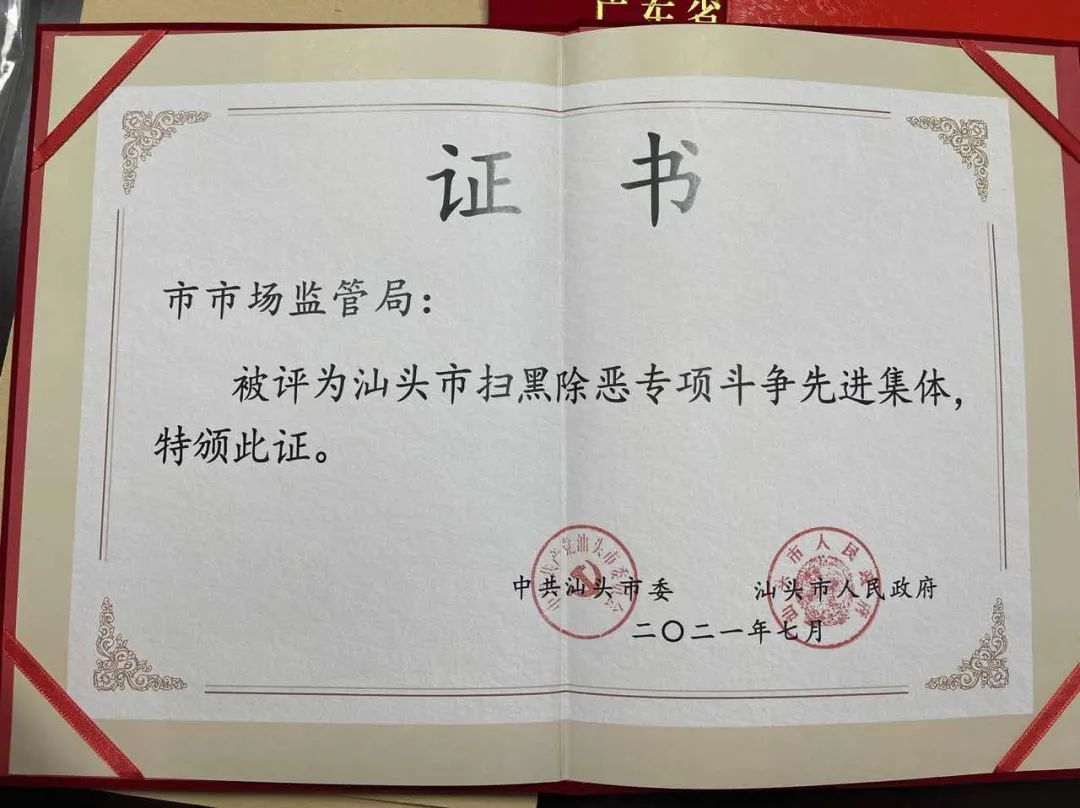 广东省
证书
市市场监管局：
被评为汕头市扫黑除恶专项斗争先进集体，
特颁此证。
中共汕头市委 汕头市人民政府
二〇二一年七月